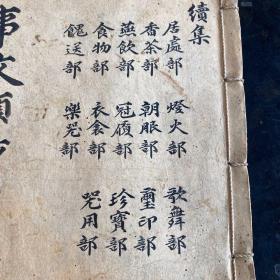 續集
居處部 燈火部 歌舞部
香茶部 朝服部 璽印部
燕飲部 冠履部 珍寶部
食物部 衣食部 咒用部
餽送部 樂咒部
事文類